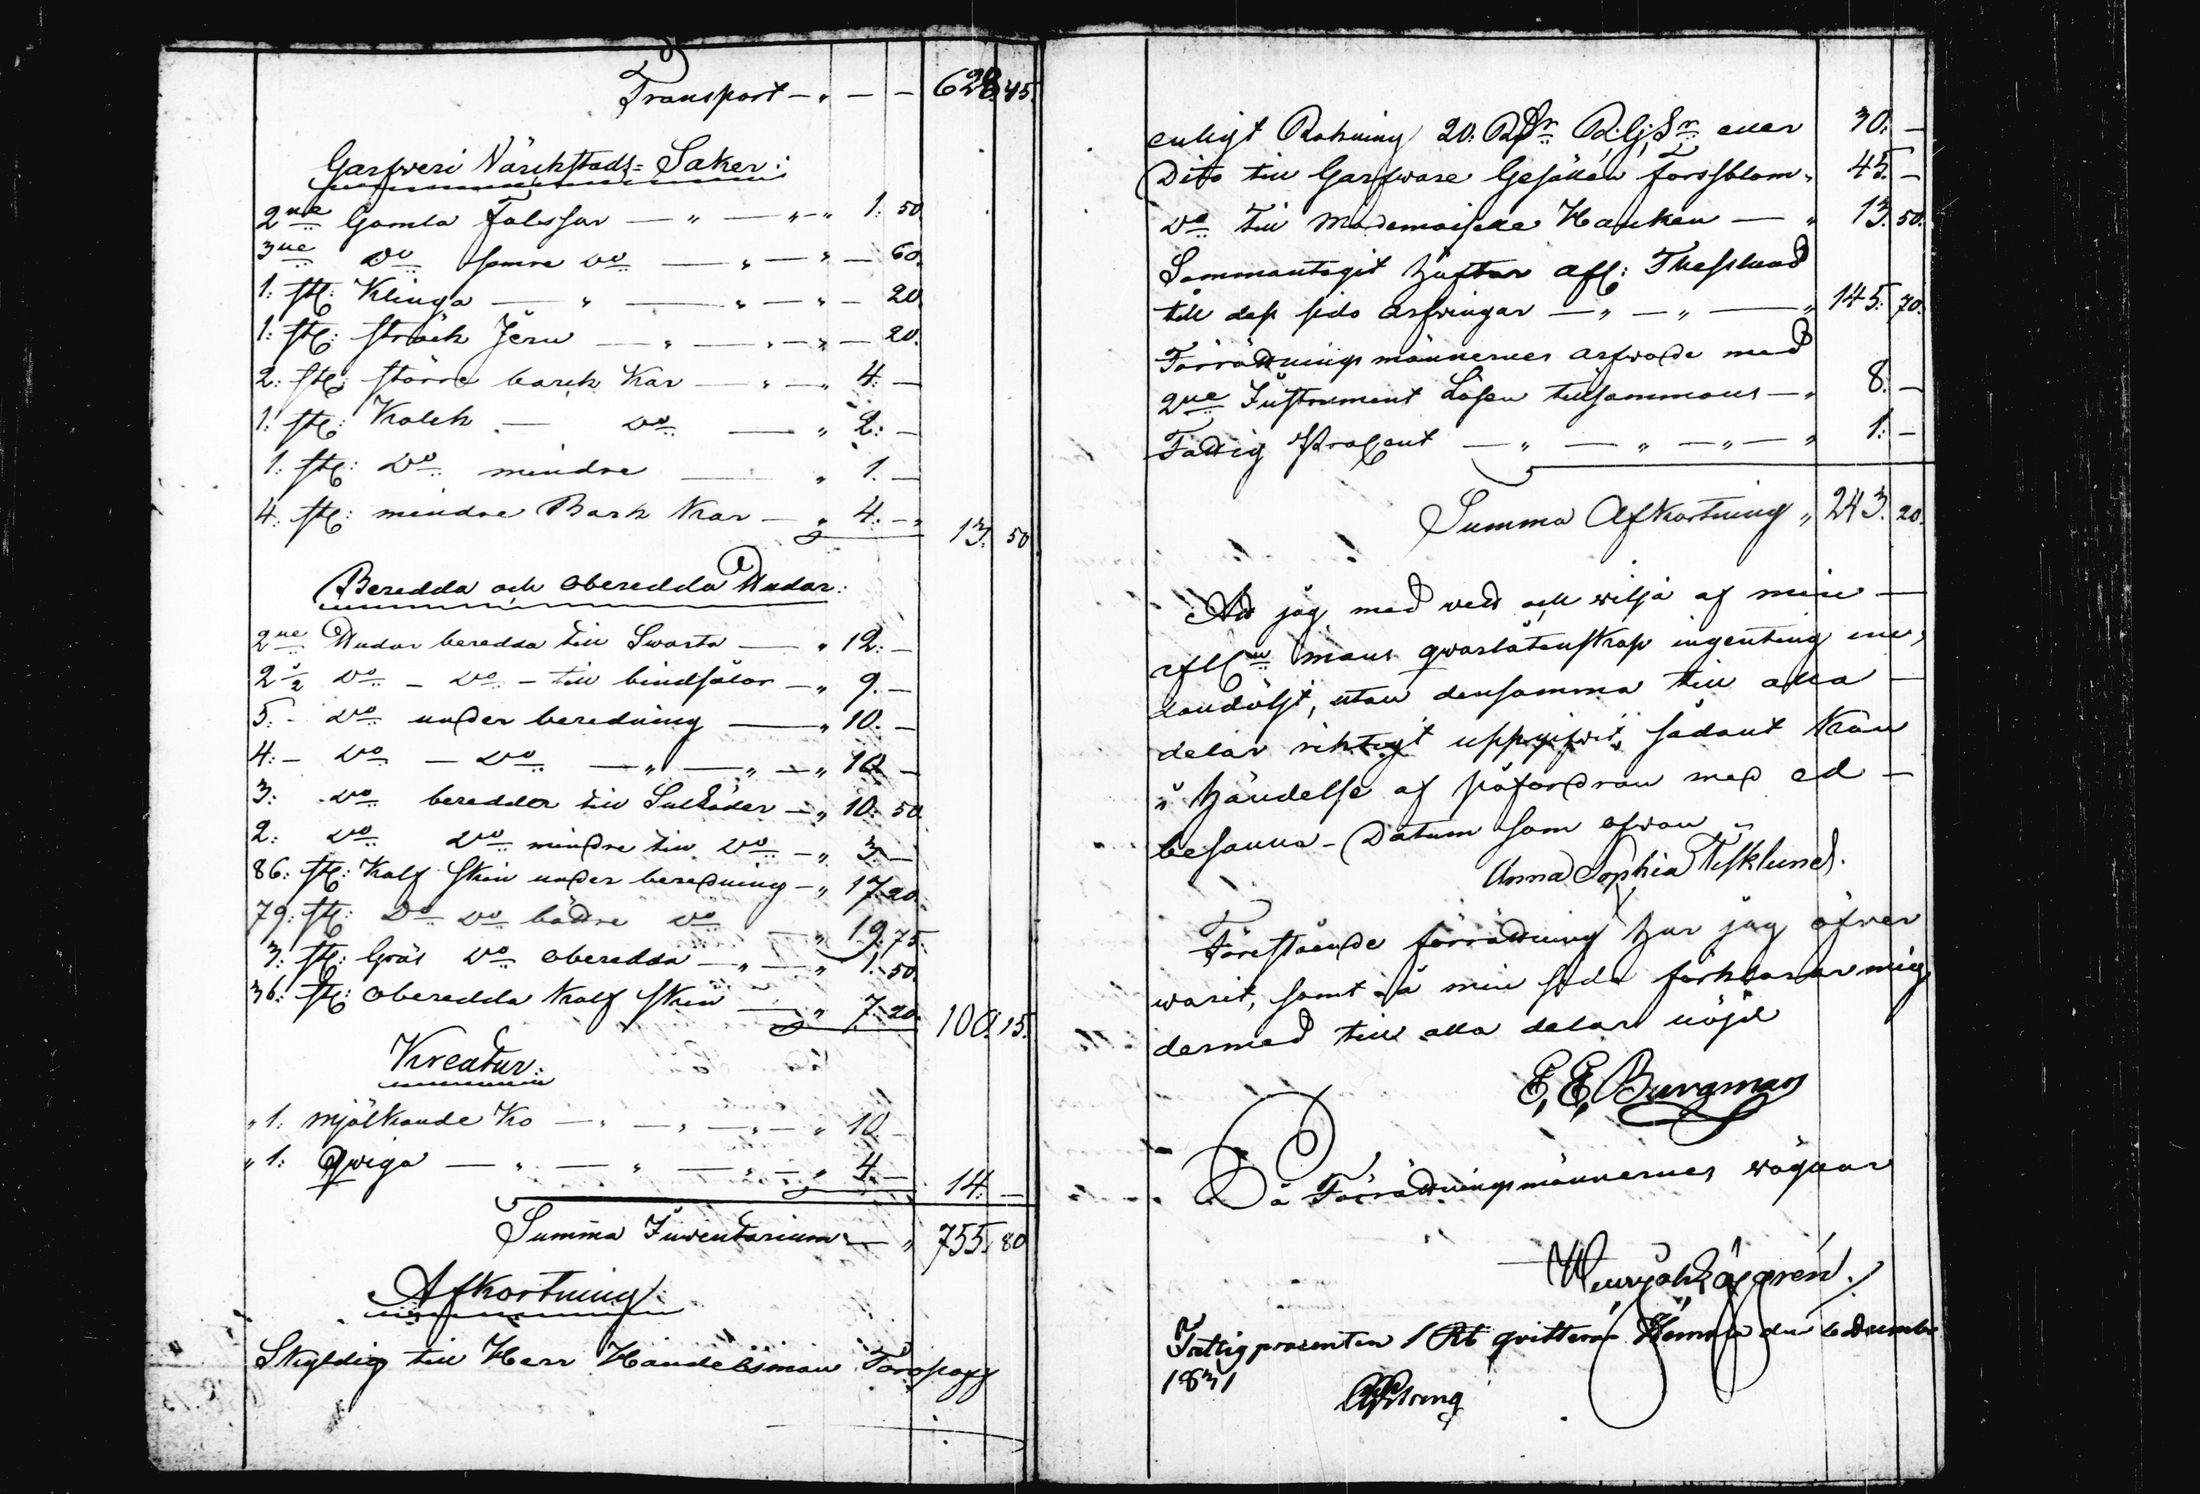 Transport — " — — 628. 45.
Garfweri Wärckstads= Saker:
2ne Gamla Falssar — " — " — " 1: 50.
3ne Do samre Do — " — " — 60.
1: st: Klinga — " — " — " — 20.
1: st: sträck Jern — " — " — " — 20.
2: st: större barck Kar — " — " 4: —
1: st: Kalck — Do — " 2: —
1: st: Do mindre — " 1. —
4: st: mindre Bark Kar — " 4: — " 13. 50
Beredda och oberedda Hudar:
2ne Hudar beredda till Swarta — " 12: —
2½ Do — Do — till bindsålor — " 9. —
5: — Do under beredning — " 10. —
4: — Do — Do — " — " — " 10 —
3: Do beredda till Sulläder — " 10: 50.
2: Do Do mindre till Do — " 3. —
86: st: Kalf Skin under beredning — " 17. 20.
79: st: Do Do bättre Do " 19. 75.
3: st: Gräs Do oberedda — " — " 1. 50.
36: st: oberedda Kalf Skin — " 7. 20. 100. 15.
Kreatur:
" 1: mjölkande Ko — " — " — " — " 10. —
" 1: Qwiga — " — " — " — " 4. — 14. —
Summa Inventarium — " 755. 80
Afkortning:
Skyldig till Herr Handelsman
enligt Räkning 20: R. G; Sr eller 30: —
Dito till Garfware Gesällen Forssblom " 45. —
Do till Mademoiselle Hauken — " 13. 50.
Sammantagit häftar afl: Thesslund
till dess sido arfvingar — " — " — " 145: 70.
Förrättnings männernes arfwode med
2ne Instrument Lösen tillsammans — " 8. —
Fattig Procent — " — " — " — " 1: —
Summa Afkortning " 243. 20.
At jag med wett och wilja af min —
aflne mans qwarlåtenskap ingenting un,
dandöljt, utan densamma till alla —
delar riktigt uppgifvit, sådant kan
i händelse af påfordran med ed —
besanna — Datum som ofwan "
Anna Sophia Tesklund.
Förestående förrättning har jag öfwer
warit, samt å min sida förklarar mig
dermed till alla delar nöjd
E, E, Bergman
På Förrättningsmännernes wägnar
Fattigprocenten 1 Rb qvitteras den 6 December
1831